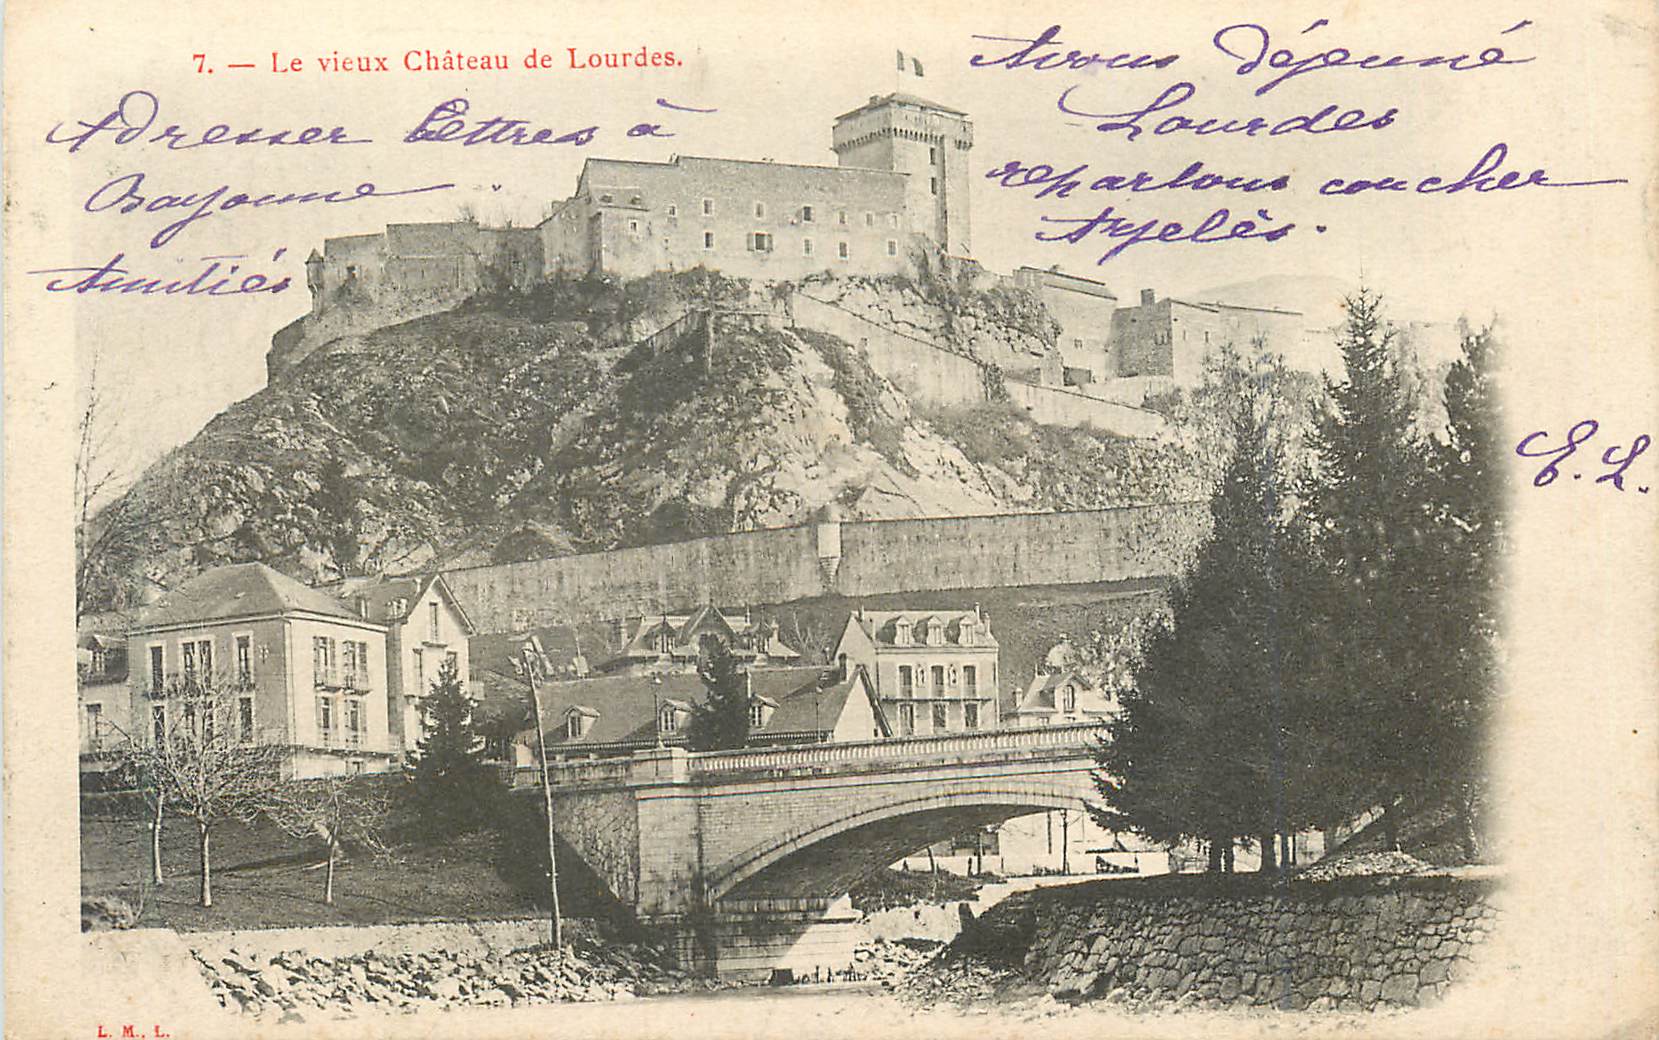 7. — Le vieux Château de Lourdes.
Adresser lettres à
Bayonne.
Amitiés
Avons déjeuné
Lourdes
repartons coucher
Argelès.
E. L.
L. M., L.